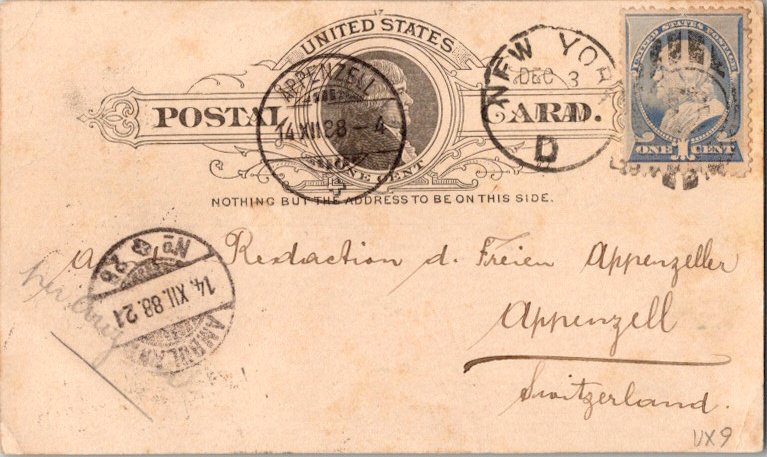 UNITED STATES
POSTAL CARD.
ONE CENT
NOTHING BUT THE ADDRESS TO BE ON THIS SIDE.
APPENZELL
14 XII 88 - 4
NEW YORK
DEC 3
D
UNITED STATES POSTAGE
ONE 1 CENT
AMBULANT
No 26
14. XII. 88. 21
a. Redaction d. Freien Appenzeller
Appenzell
Switzerland.
VX9